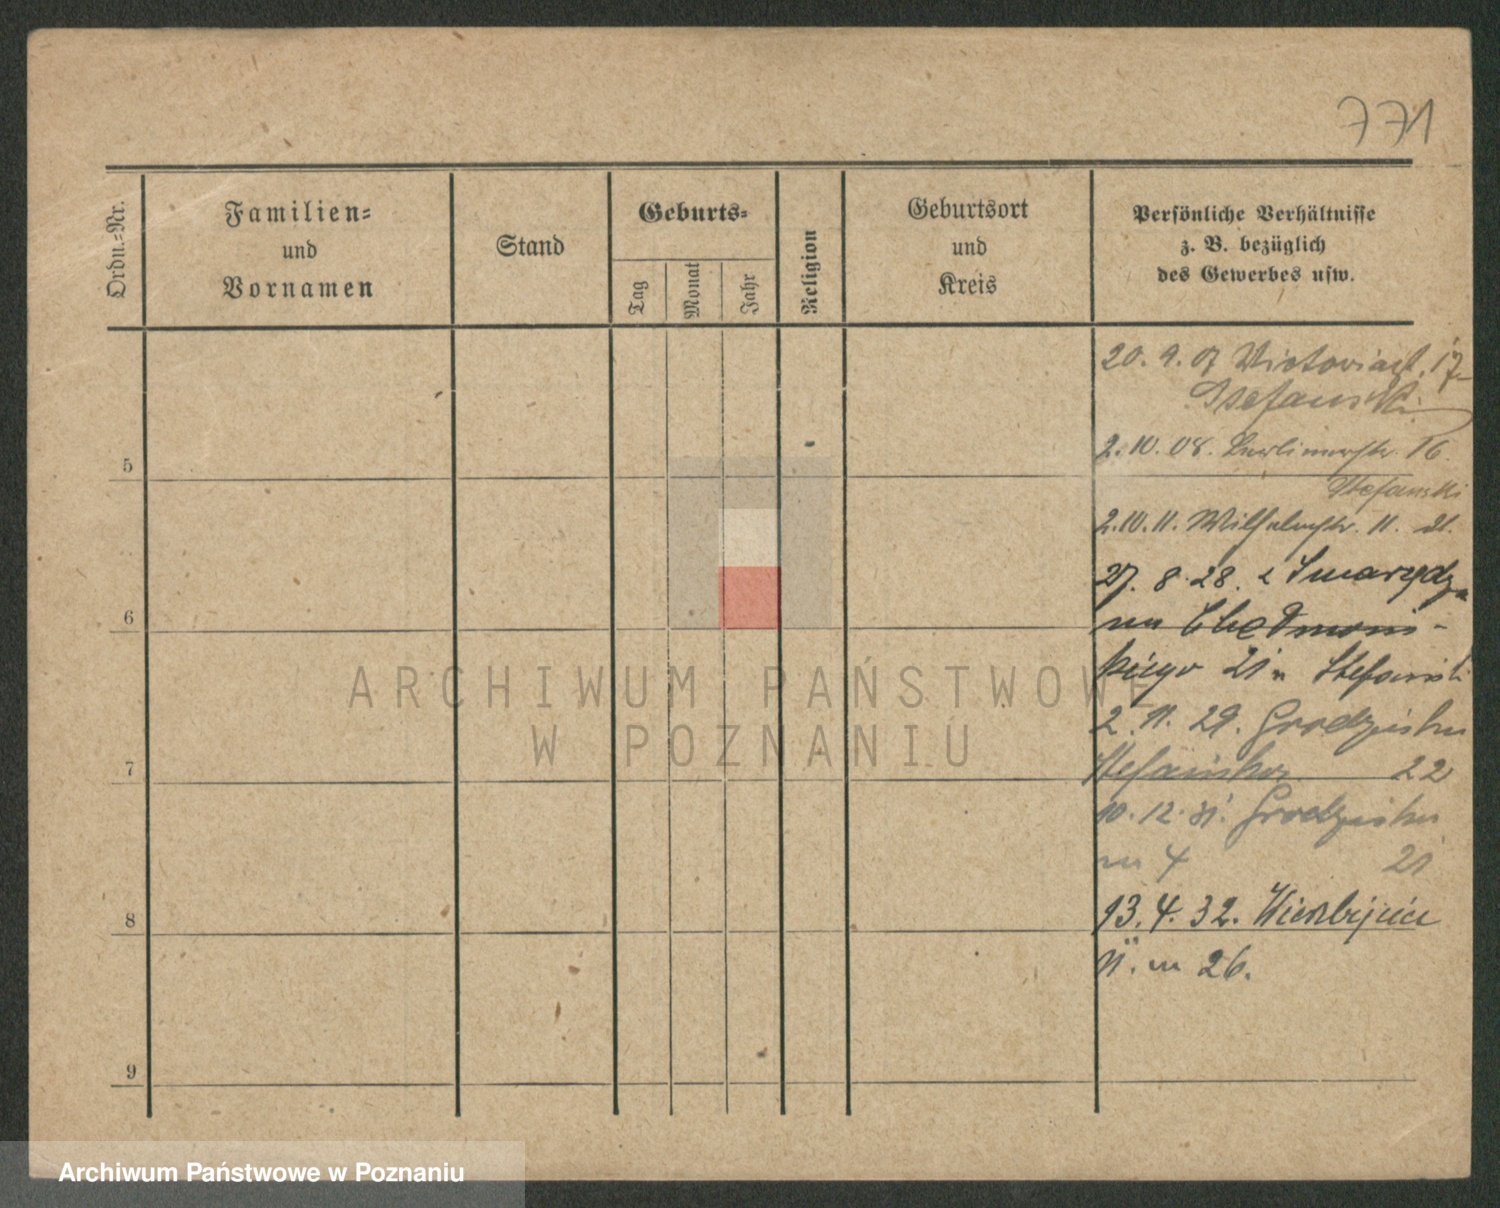 771
Ordn.-Nr.
Familien-
und
Vornamen
Stand
Geburts-
Tag
Monat
Jahr
Religion
Geburtsort
und
Kreis
Persönliche Verhältnisse
z. B. bezüglich
des Gewerbes usw.
20. 9. 07 Victoriast. 17
Stefanski
5
2. 10. 08. Berlinerstr. 16.
Stefanski
2. 10. 11. Wilhelmstr. 11.
27. 8. 28. z Smarzędza
6
na Chełmoń-
skiego 21 Stefański
2. 11. 29. Grodziska
7
Stefańska 22
10. 12. 31. Grodziska
m 4 21
8
13. 4. 32. Wierzbięcice
11. m 26.
9
ARCHIWUM PAŃSTWOWE
W POZNANIU
Archiwum Państwowe w Poznaniu